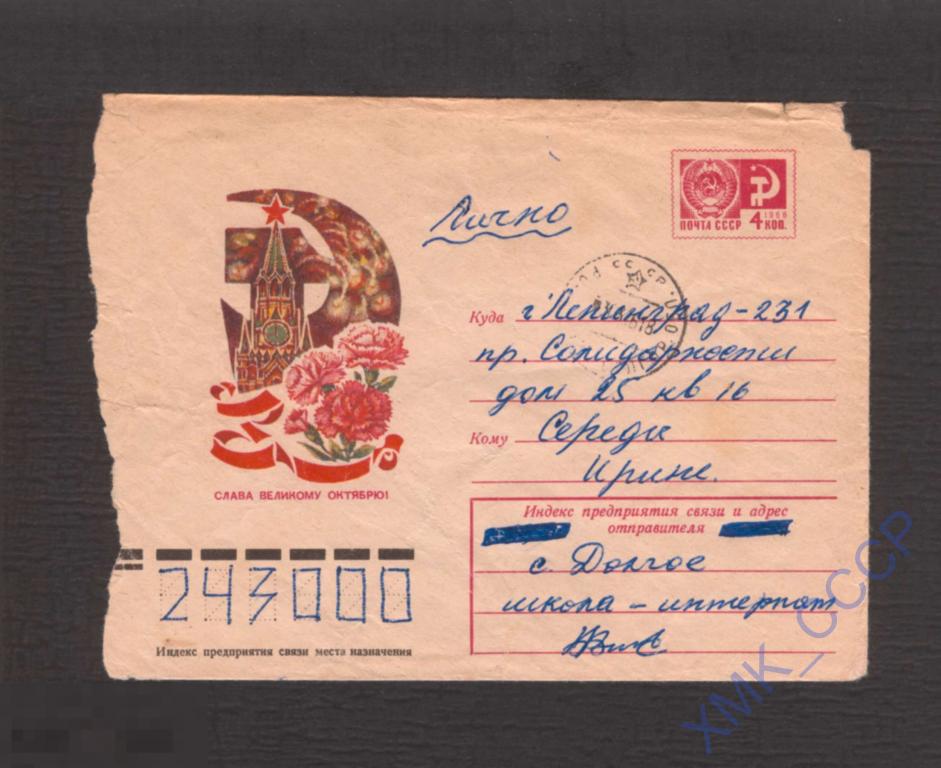 Лично
ПОЧТА СССР
1966
4 КОП.
СССР
Куда г. Ленинград-231
пр. Солидарности
дом 25 кв 16
Кому Середи
Ирине.
СЛАВА ВЕЛИКОМУ ОКТЯБРЮ!
Индекс предприятия связи и адрес
отправителя
с. Долгое
школа - интернат
243000
Индекс предприятия связи места назначения
ХМК_СССР